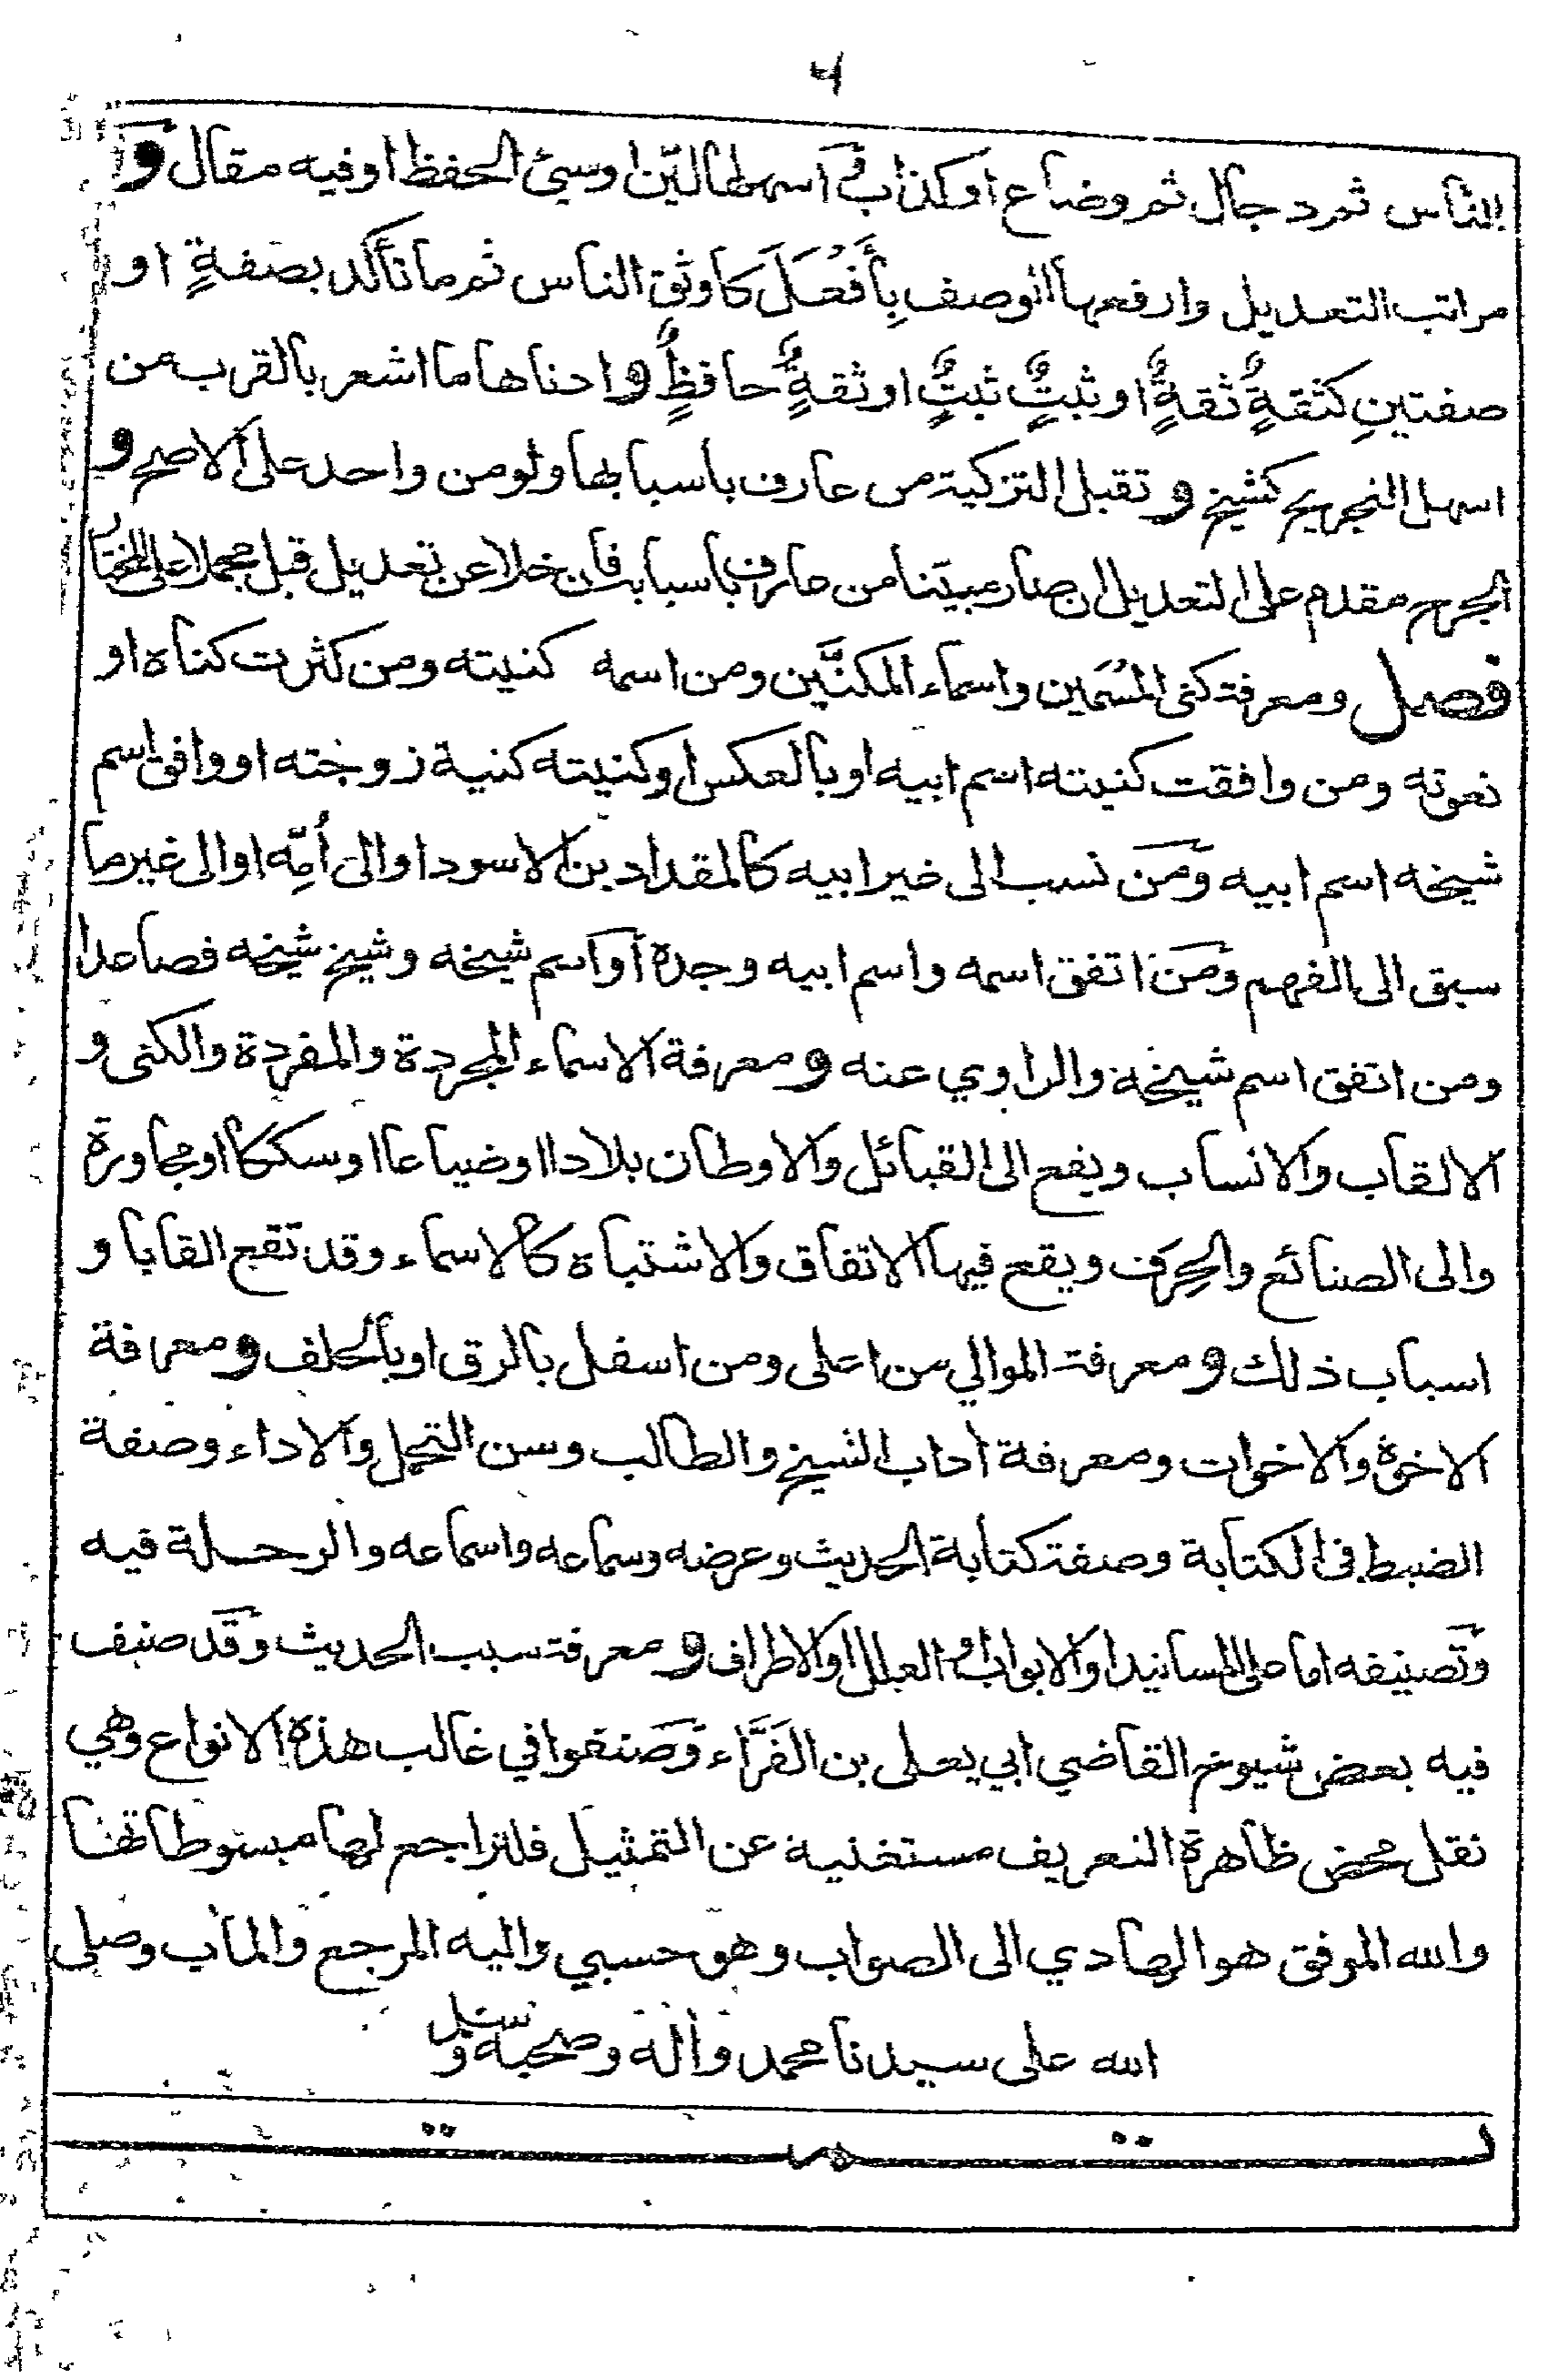 ٦
الناس ثم دجال ثم وضاع او كذاب واسهلها ليّن او سيئ الحفظ او فيه مقال و
مراتب التعديل وارفعها الوصف بِأَفْعَلَ كاوثق الناس ثم ما تأكد بصفةٍ او
صفتينِ كثقةٍ ثقةٍ او ثبتٍ ثبتٍ او ثقةٍ حافظٍ وادناها ما اشعر بالقرب من
اسهل التجريح كشيخ وتقبل التزكية من عارف باسبابها ولو من واحد على الاصح و
الجرح مقدم على التعديل ان صار مبيّنا من عارف باسبابه فان خلا عن تعديل قبل مجملا على المختار
فصل ومعرفة كنى المُسَمين واسماء المكنَّين ومن اسمه كنيته ومن كثرت كناه او
نعوته ومن وافقت كنيته اسم ابيه او بالعكس او كنيته كنية زوجته او وافق اسم
شيخه اسم ابيه ومن نسب الى غير ابيه كالمقداد بن الاسود او الى أُمِّه او الى غير ما
سبق الى الفهم ومن اتفق اسمه واسم ابيه وجده او اسم شيخه وشيخ شيخه فصاعدا
ومن اتفق اسم شيخه والراوي عنه ومعرفة الاسماء المجردة والمفردة والكنى و
الالقاب والانساب ويقع الى القبائل والاوطان بلادا او ضياعا او سككا او مجاورة
والى الصنائع والحِرَف ويقع فيها الاتفاق والاشتباه كالاسماء وقد تقع القابا و
اسباب ذلك ومعرفة الموالي من اعلى ومن اسفل بالرق او بالحلف ومعرفة
الاخوة والاخوات ومعرفة اداب الشيخ والطالب وسن التحمل والاداء وصفة
الضبط في الكتابة وصفة كتابة الحديث وعرضه وسماعه واسماعه والرحلة فيه
وتصنيفه اما على المسانيد او الابواب او العلل او الاطراف ومعرفة سبب الحديث وقد صنف
فيه بعض شيوخ القاضي ابي يعلى بن الفَرَّاء وصنفوا في غالب هذه الانواع وهي
نقل محض ظاهرة التعريف مستغنية عن التمثيل فلتراجع لها مبسوطاتها
والله الموفق هو الهادي الى الصواب وهو حسبي واليه المرجع والمآب وصلى
الله على سيدنا محمد وآله وصحبه وسلم
تمت